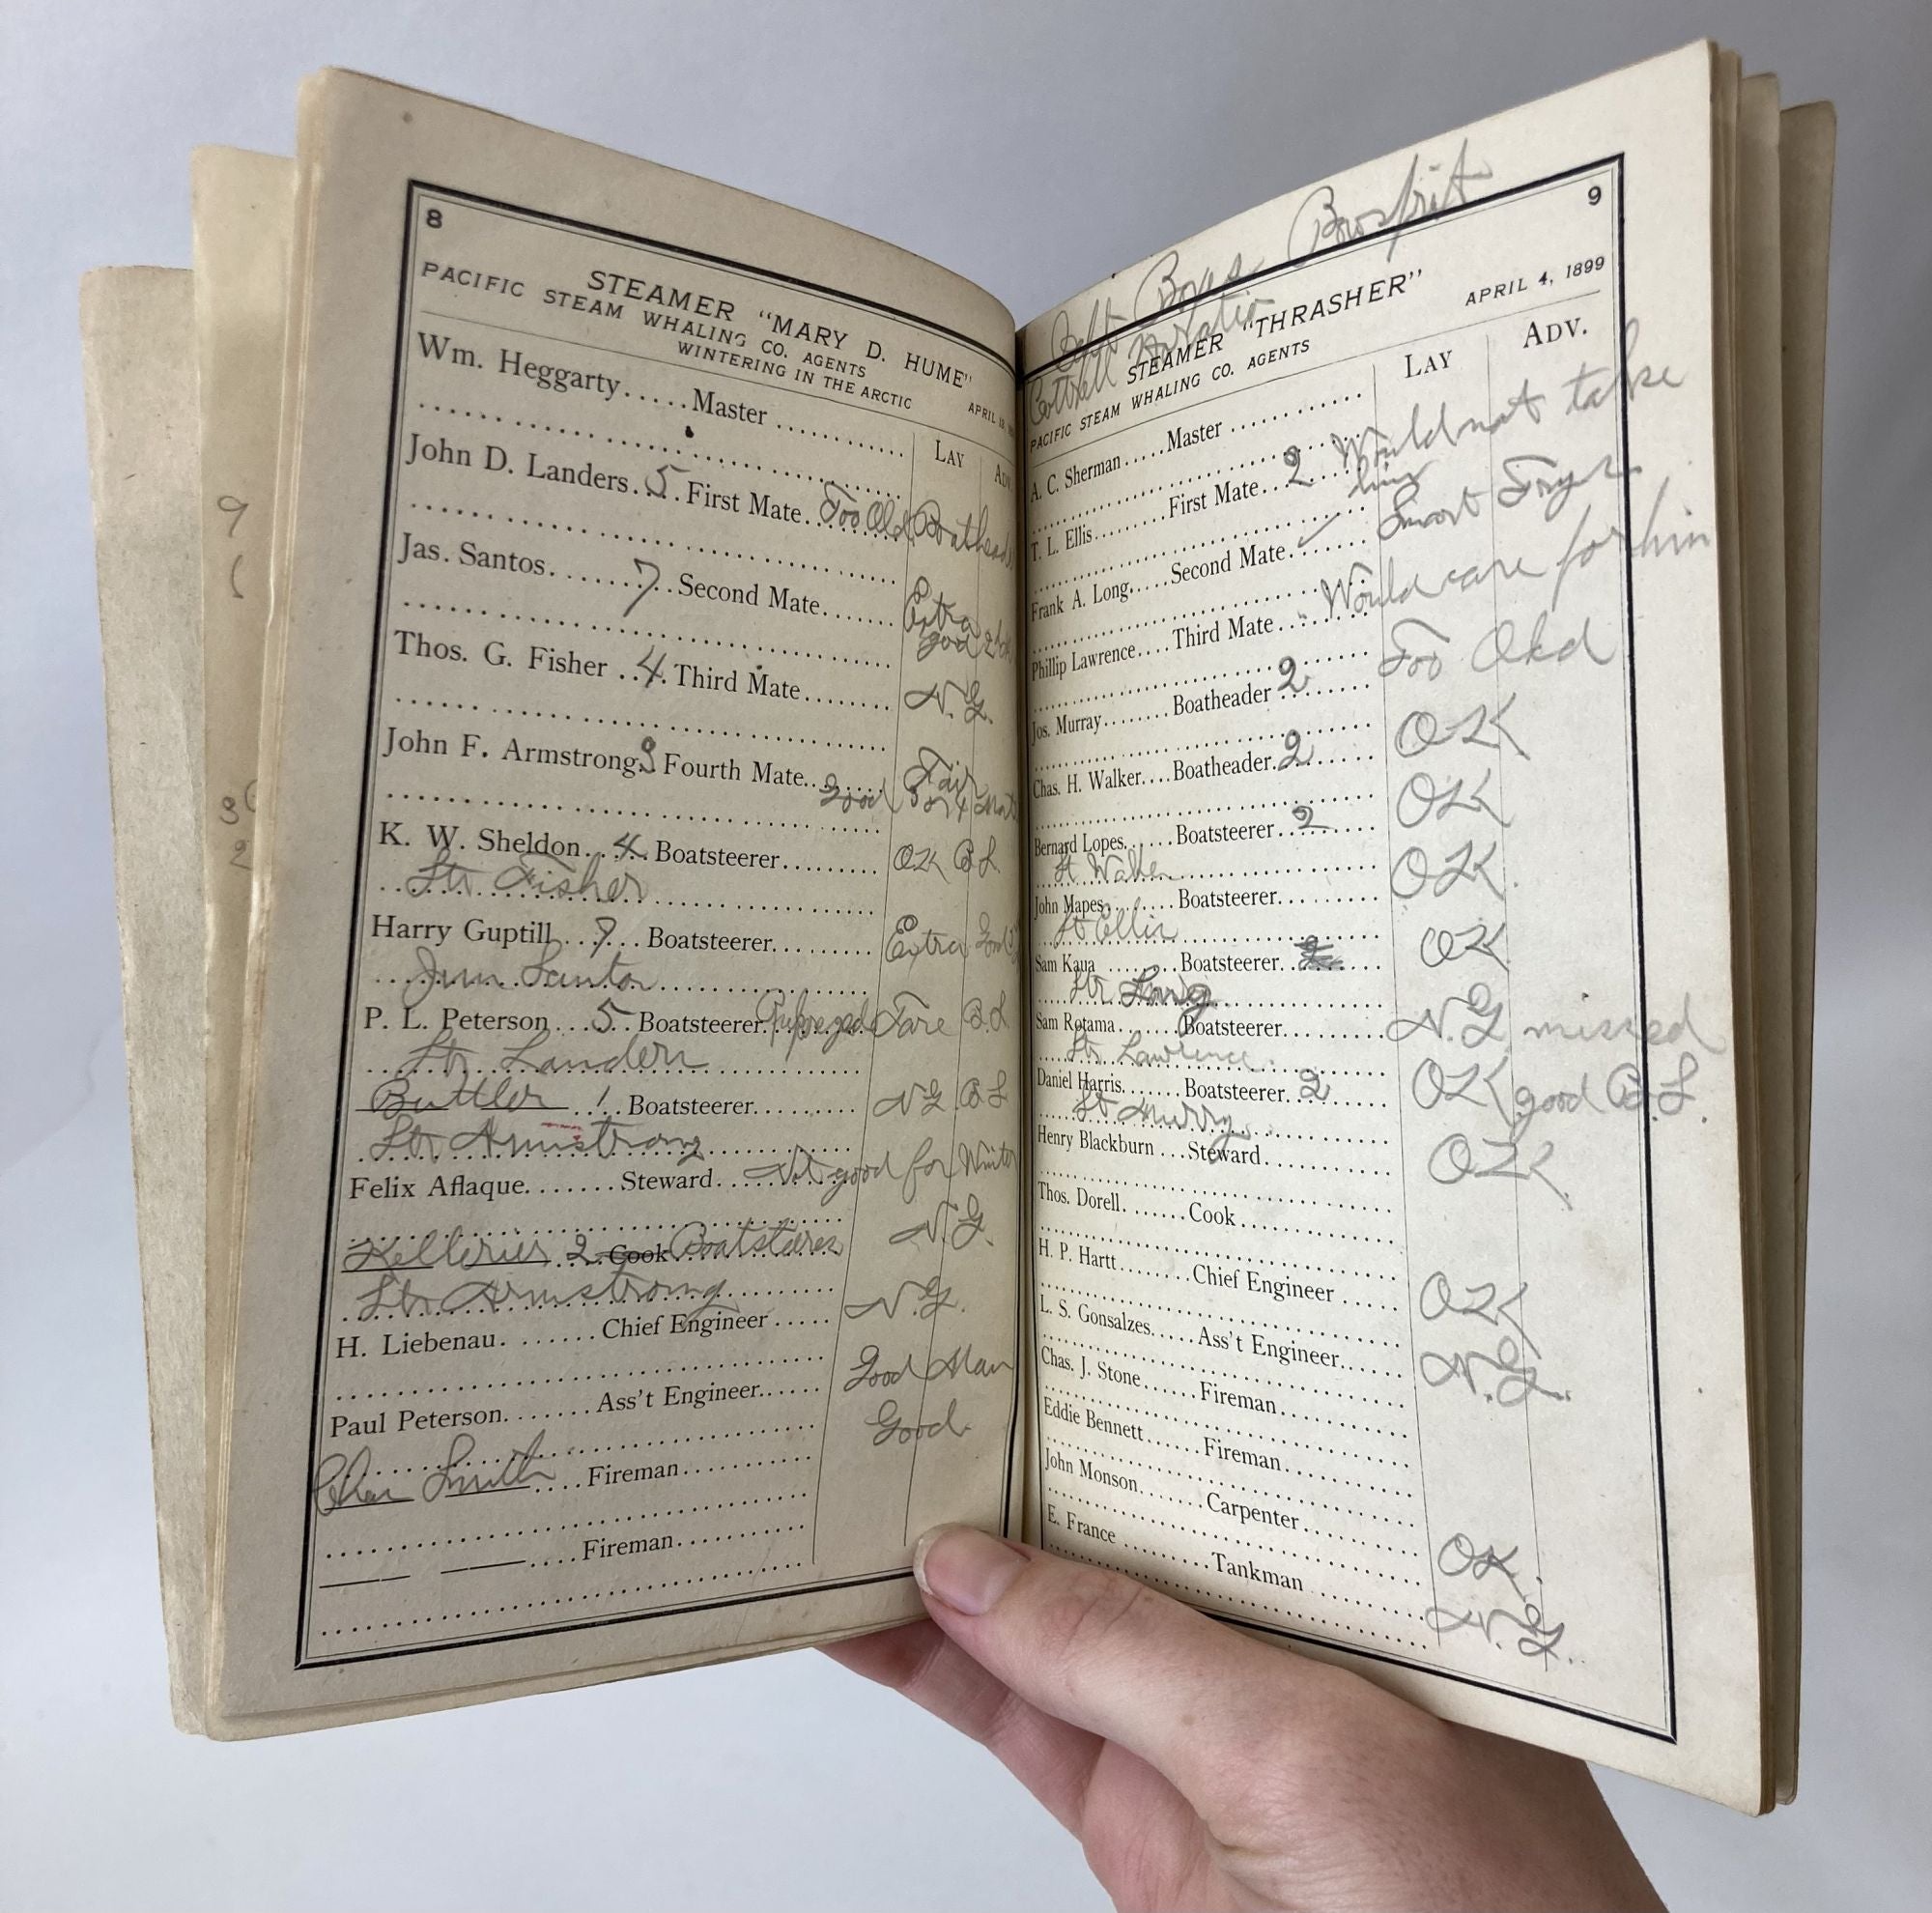 9
8
STEAMER "MARY D. HUME"
PACIFIC STEAM WHALING CO. AGENTS
WINTERING IN THE ARCTIC APRIL
LAY
Wm. Heggarty.....Master
John D. Landers. 5 First Mate. Too Old
Jas. Santos. 7 Second Mate. Extra good
Thos. G. Fisher 4 Third Mate N.G.
John F. Armstrong. Fourth Mate. Good Fair
K. W. Sheldon. 4 Boatsteerer. OK B.S.
Str Fisher
Harry Guptill 7 Boatsteerer. Extra
P. L. Peterson 5 Boatsteerer. B.S.
Str Landers
Buttler 1 Boatsteerer. NG B S
Str Armstrong
Felix Aflaque. Steward. Not good for Winter
2 Cook Boatsteerer N.G.
Str Armstrong
H. Liebenau. Chief Engineer N.G.
Paul Peterson. Ass't Engineer. Good Man
Smith Fireman Good
Fireman
Bowsprit
9
STEAMER "THRASHER" APRIL 4, 1899
PACIFIC STEAM WHALING CO. AGENTS
LAY ADV.
A. C. Sherman.....Master
T. L. Ellis........First Mate. 2 Would not take him
Frank A. Long.....Second Mate. Smart
Phillip Lawrence....Third Mate. Would care for him
Jos. Murray........Boatheader 2 Too Old
Chas. H. Walker....Boatheader. 2 OK
Bernard Lopes. Boatsteerer 2 OK
John Mapes. Boatsteerer. OK
St Ellis
Sam Kaua Boatsteerer. OK
Str Long
Sam Rotama. Boatsteerer. N.G missed
Str Lawrence.
Daniel Harris. Boatsteerer. 2 OK good B.S.
Henry Blackburn ...Steward. OK
Thos. Dorell.......Cook
H. P. Hartt........Chief Engineer OK
L. S. Gonsalzes.....Ass't Engineer. N.G.
Chas. J. Stone......Fireman
Eddie Bennett......Fireman
John Monson........Carpenter OK.
E. France..........Tankman N.G.